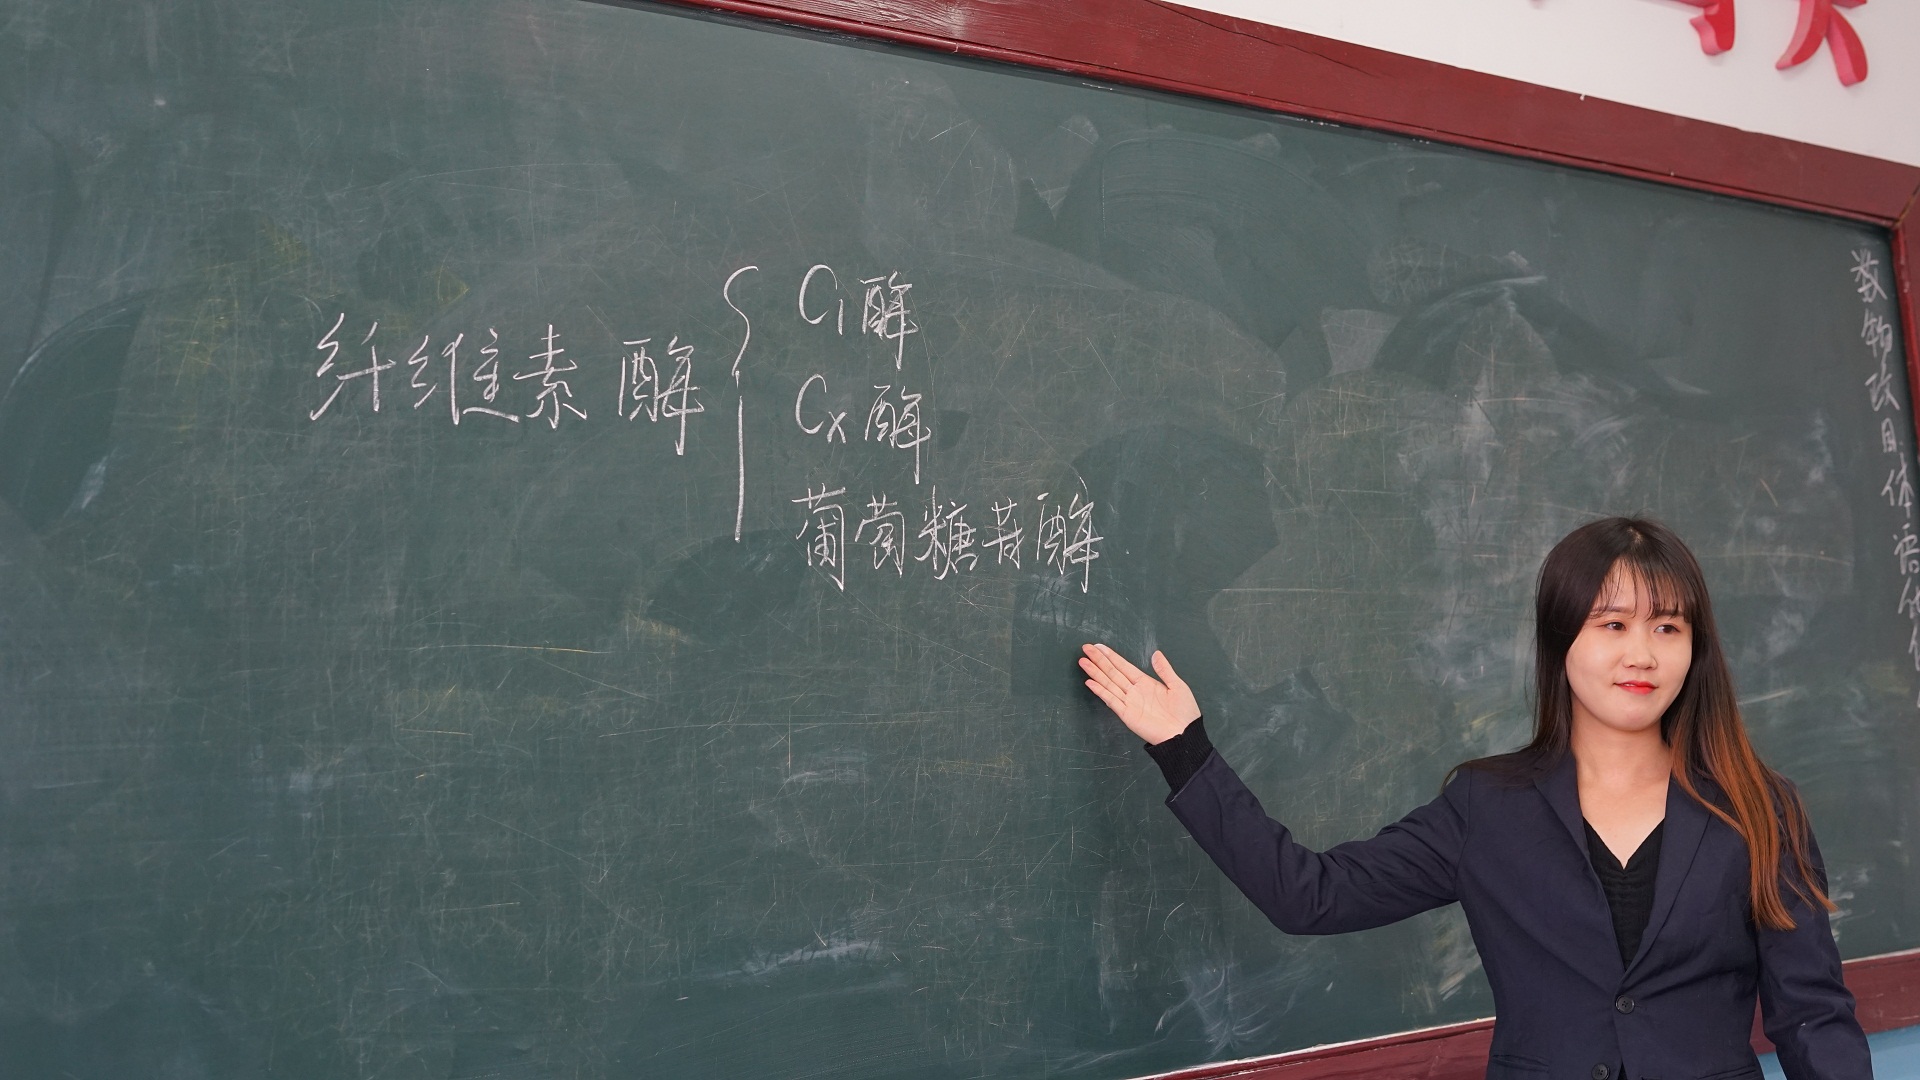 纤维素酶
C₁酶
Cx酶
葡萄糖苷酶
数物政日体语